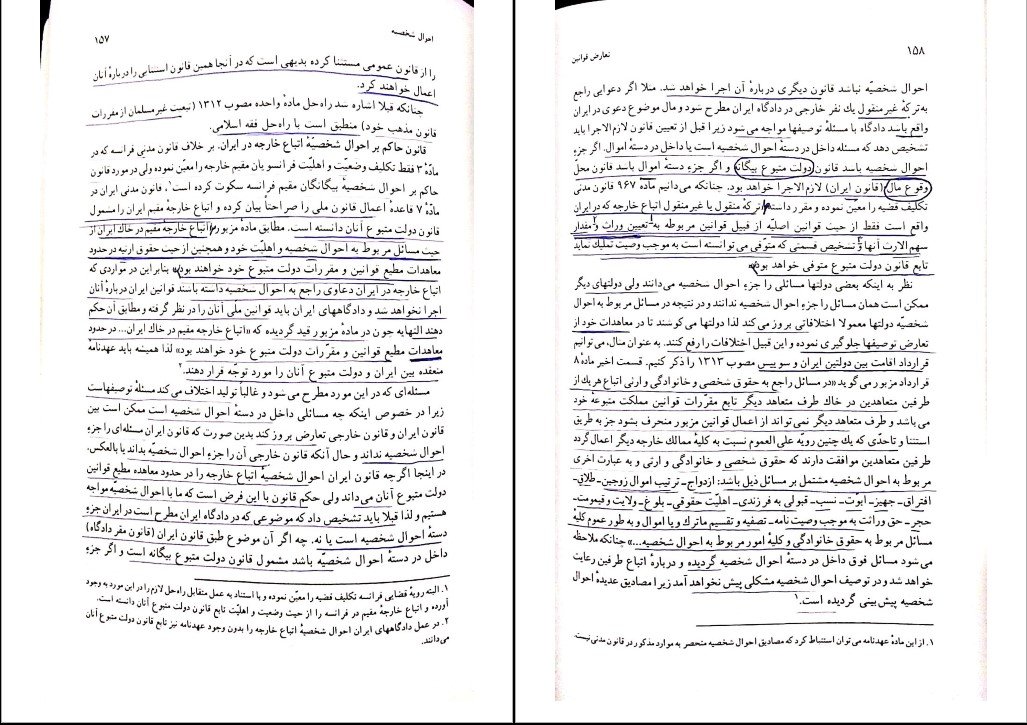 احوال شخصیه
۱۵۷
را از قانون عمومی مستثنا کرده بدیهی است که در آنجا همین قانون استثنایی را دربارهٔ آنان
اعمال خواهند کرد.
چنانکه قبلا اشاره شد راه‌حل مادهٔ واحده مصوب ۱۳۱۲ (تبعیت غیر مسلمان از مقررات
قانون مذهب خود) منطبق است با راه‌حل فقه اسلامی.
قانون حاکم بر احوال شخصیهٔ اتباع خارجه در ایران. بر خلاف قانون مدنی فرانسه که در
مادّهٔ ۳ فقط تکلیف وضعیّت و اهلیّت فرانسویان مقیم خارجه را معیّن نموده ولی در مورد قانون
حاکم بر احوال شخصیهٔ بیگانگان مقیم فرانسه سکوت کرده است۱، قانون مدنی ایران در
مادّهٔ ۷ قاعدهٔ اعمال قانون ملی را صراحتاً بیان کرده و اتباع خارجهٔ مقیم ایران را مشمول
قانون دولت متبوع آنان دانسته است. مطابق ماده مزبور «اتباع خارجه مقیم در خاک ایران از
حیث مسائل مربوط به احوال شخصیه و اهلیّت خود و همچنین از حیث حقوق ارثیه در حدود
معاهدات مطیع قوانین و مقررات دولت متبوع خود خواهند بود» بنابراین در مواردی که
اتباع خارجه در ایران دعاوی راجع به احوال شخصیه داشته باشند قوانین ایران دربارهٔ آنان
اجرا نخواهد شد و دادگاههای ایران باید قوانین ملی آنان را در نظر گرفته و مطابق آن حکم
دهند النهایه چون در مادهٔ مزبور قید گردیده که «اتباع خارجه مقیم در خاک ایران... در حدود
معاهدات مطیع قوانین و مقرّرات دولت متبوع خود خواهند بود» لذا همیشه باید عهدنامهٔ
منعقده بین ایران و دولت متبوع آنان را مورد توجّه قرار دهند.۲
مسئله‌ای که در این مورد مطرح می‌شود و غالباً تولید اختلاف می‌کند مسئلهٔ توصیفهاست
زیرا در خصوص اینکه چه مسائلی داخل در دستهٔ احوال شخصیه است ممکن است بین
قانون ایران و قانون خارجی تعارض بروز کند بدین صورت که قانون ایران مسئله‌ای را جزءِ
احوال شخصیه نداند و حال آنکه قانون خارجی آن را جزءِ احوال شخصیّه بداند یا بالعکس.
در اینجا اگرچه قانون ایران احوال شخصیهٔ اتباع خارجه را در حدود معاهده مطیع قوانین
دولت متبوع آنان می‌داند ولی حکم قانون با این فرض است که ما با احوال شخصیّه مواجه
هستیم و لذا قبلا باید تشخیص داد که موضوعی که در دادگاه ایران مطرح است در ایران جزءِ
دستهٔ احوال شخصیه است یا نه. چه اگر آن موضوع طبق قانون ایران (قانون مقر دادگاه)
داخل در دستهٔ احوال شخصیّه باشد مشمول قانون دولت متبوع بیگانه است و اگر جزءِ
۱. البته رویهٔ قضایی فرانسه تکلیف قضیه را معیّن نموده و با استناد به عمل متقابل راه‌حل لازم را در این مورد به وجود
آورده و اتباع خارجهٔ مقیم در فرانسه را از حیث وضعیت و اهلیّت تابع قانون دولت متبوع آنان دانسته است.
۲. در عمل دادگاههای ایران احوال شخصیهٔ اتباع خارجه را بدون وجود عهدنامه نیز تابع قانون دولت متبوع آنان
می‌دانند.
۱۵۸
تعارض قوانین
احوال شخصیّه نباشد قانون دیگری دربارهٔ آن اجرا خواهد شد. مثلا اگر دعوایی راجع
به‌ترکهٔ غیرمنقول یک نفر خارجی در دادگاه ایران مطرح شود و مال موضوع دعوی در ایران
واقع باشد دادگاه با مسئلهٔ توصیفها مواجه می‌شود زیرا قبل از تعیین قانون لازم‌الاجرا باید
تشخیص دهد که مسئله داخل در دستهٔ احوال شخصیه است یا داخل در دستهٔ اموال. اگر جزءِ
احوال شخصیه باشد قانون دولت متبوع بیگانه و اگر جزءِ دستهٔ اموال باشد قانون محلّ
وقوع مال (قانون ایران) لازم‌الاجرا خواهد بود. چنانکه می‌دانیم مادّهٔ ۹۶۷ قانون مدنی
تکلیف قضیه را معیّن نموده و مقرر داشته «ترکهٔ منقول یا غیر منقول اتباع خارجه که در ایران
واقع است فقط از حیث قوانین اصلیّه از قبیل قوانین مربوطه به تعیین وراث و مقدار
سهم‌الارث آنها و تشخیص قسمتی که متوفی می‌توانسته است به موجب وصیت تملیک نماید
تابع قانون دولت متبوع متوفی خواهد بود».
نظر به اینکه بعضی دولتها مسائلی را جزءِ احوال شخصیه می‌دانند ولی دولتهای دیگر
ممکن است همان مسائل را جزءِ احوال شخصیه ندانند و در نتیجه در مسائل مربوط به احوال
شخصیّه دولتها معمولا اختلافاتی بروز می‌کند لذا دولتها می‌کوشند تا در معاهدات خود از
تعارض توصیفها جلوگیری نموده و این قبیل اختلافات را رفع کنند. به عنوان مثال، می‌توانیم
قرارداد اقامت بین دولتین ایران و سویس مصوب ۱۳۱۳ را ذکر کنیم. قسمت اخیر مادهٔ ۸
قرارداد مزبور می‌گوید «در مسائل راجع به حقوق شخصی و خانوادگی و ارثی اتباع هریک از
طرفین متعاهدین در خاک طرف متعاهد دیگر تابع مقرّرات قوانین مملکت متبوعهٔ خود
می‌باشد و طرف متعاهد دیگر نمی‌تواند از اعمال قوانین مزبور منحرف بشود جز به طریق
استثنا و تاحدّی که یک چنین رویّه علی‌العموم نسبت به کلیهٔ ممالک خارجه دیگر اعمال گردد
طرفین متعاهدین موافقت دارند که حقوق شخصی و خانوادگی و ارثی و به عبارت اخری
مربوط به احوال شخصیه مشتمل بر مسائل ذیل باشد: ازدواج ـ ترتیب اموال زوجین ـ طلاق ـ
افتراق ـ جهیز ـ ابوّت ـ نسب ـ قبولی به فرزندی ـ اهلیّت حقوقی ـ بلوغ ـ ولایت و قیمومت ـ
حجر ـ حق وراثت به موجب وصیت‌نامه ـ تصفیه و تقسیم ماترک و یا اموال و به طور عموم کلیهٔ
مسائل مربوط به حقوق خانوادگی و کلیهٔ امور مربوط به احوال شخصیه...» چنانکه ملاحظه
می‌شود مسائل فوق داخل در دستهٔ احوال شخصیه گردیده و دربارهٔ اتباع طرفین رعایت
خواهد شد و در توصیف احوال شخصیه مشکلی پیش نخواهد آمد زیرا مصادیق عدیدهٔ احوال
شخصیه پیش‌بینی گردیده است.۱
۱. از این مادهٔ عهدنامه می‌توان استنباط کرد که مصادیق احوال شخصیه منحصر به موارد مذکور در قانون مدنی نیست.